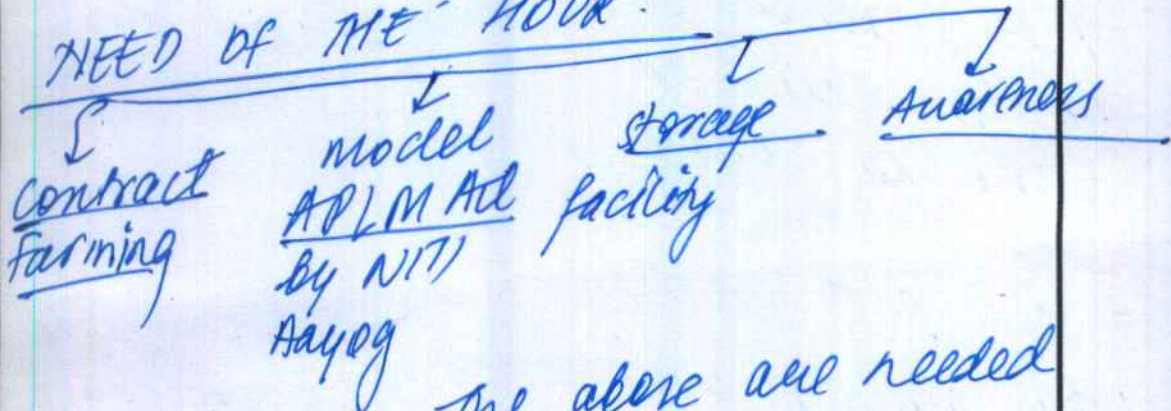 NEED OF THE HOUR.
Contract Farming
model APLM Act by NITI Aayog
storage facility
Awareness
The above are needed